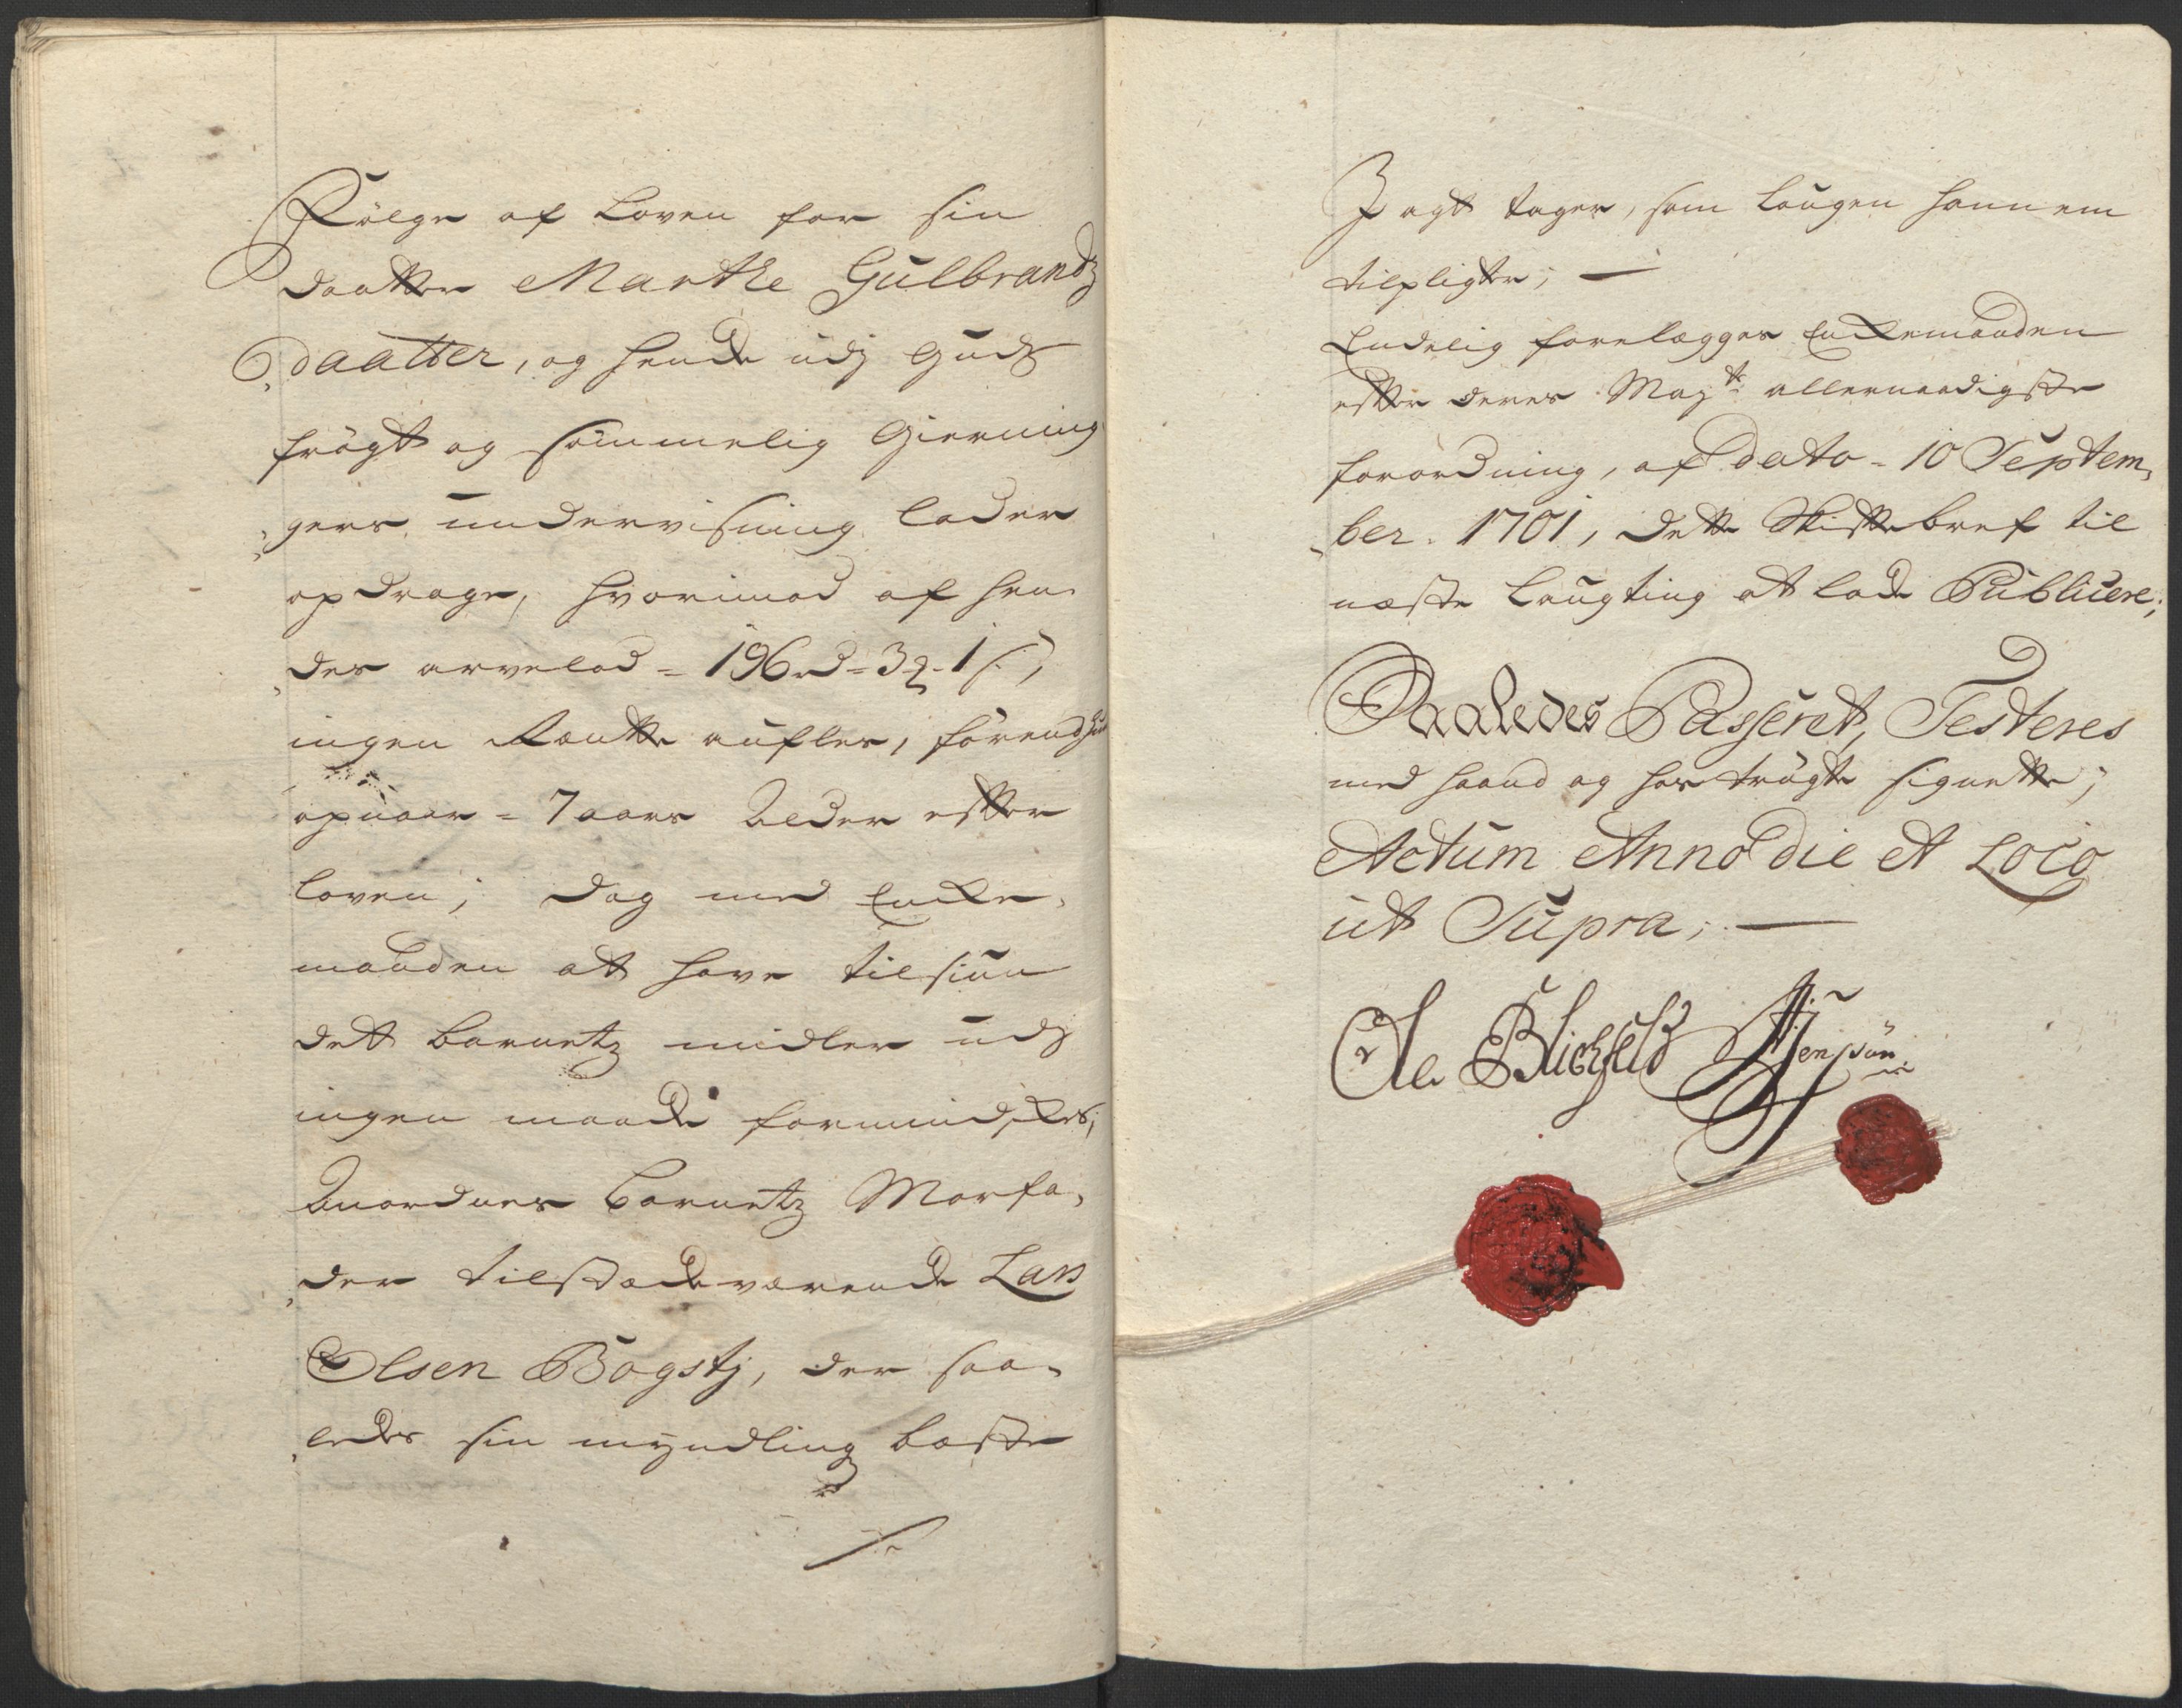 Fölge af Loven for sin
daatter Marthe Gulbrandtz
„daatter, og hende udj Guds
frögt og sömmelig Gierning
„gers underviisning lader
opdrage, hvorimod af hen„
„des arvelod = 196 rd = 3 q. 1 s;
ingen Rentte aufles, förend hun
opnaar = 7 aars Alder efter
loven; Dog med Encke„
manden at have tilsiun
dett Barnetz midler udj
ingen maade formindskes;
Anordnes Barnetz Morfa„
„der tilstædeværende Lars
Olsen Bogstj, der saa„
„ledes sin myndling bæste
J agt tager, som Laugen hannem
tilpligter; —
Endelig forelægges Enckemanden
efter deres Mayt allernaadigste
forordning, af Dato = 10 Septem„
„ber. 1701, dette Skiftebref til
næste Laugting at lade Publicere;
Saaledes Passeret, Testeres
med haand og hoströgte signetter;
Actum Anno die et Loco
ut Supra; —
Ole Blichfeld Jenssön